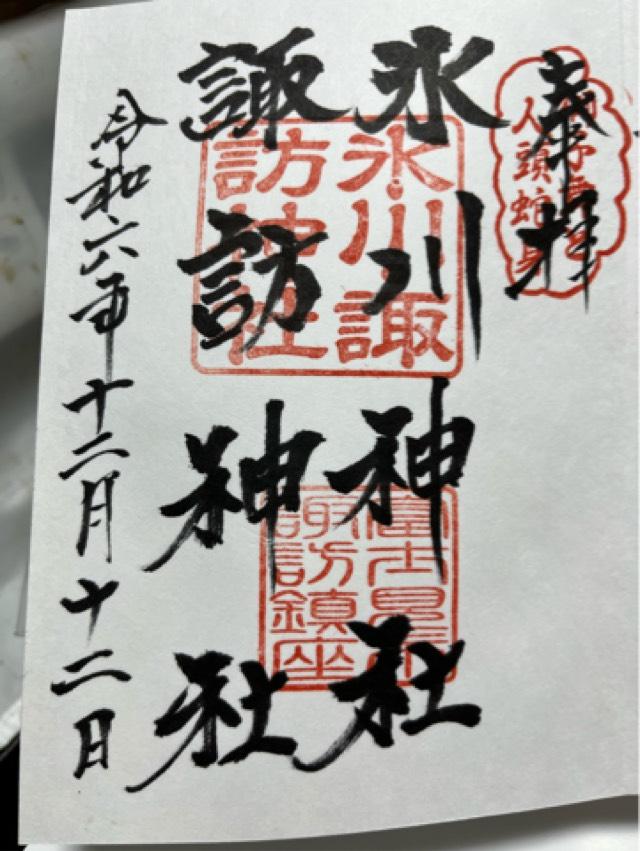 奉拝
人頭蛇身
氷川神社
諏訪神社
氷川諏
訪神社
富士見
諏訪鎮座
令和六年十二月十二日